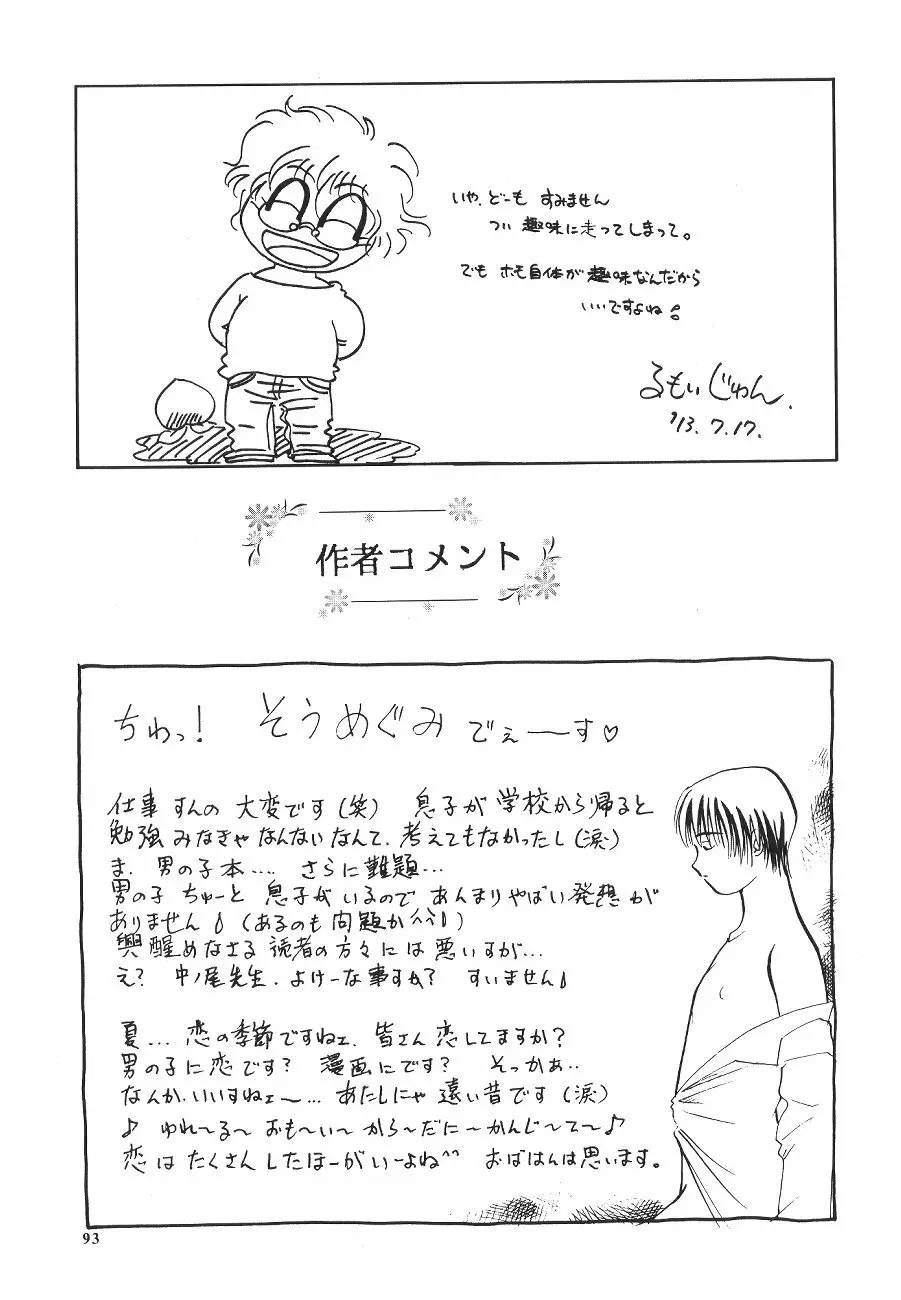 いや、どーも すみません
つい 趣味に走ってしまって。
でも ホモ自体が趣味なんだから
いいですよね!
るもいじゅん.
'13.7.17.
作者コメント
ちわっ! そうめぐみ でぇーーす♡
仕事すんの 大変です(笑) 息子が学校から帰ると
勉強みなきゃなんないなんて、考えてもなかったし(涙)
ま、男の子本.... さらに難題...
男の子 ちゅーと 息子がいるので あんまりやばい発想が
ありません!(あるのも問題か^^!)
興醒めなさる読者の方々には悪いすが...
え? 中ノ尾先生、よけーな事すか? すいません!
夏... 恋の季節ですねェ、皆さん恋してますか?
男の子に恋です? 漫画にです? そっかぁ..
なんか、いいすねェ〜... あたしにゃ 遠い昔です(涙)
♪ ゆれ〜る〜 おも〜い〜 から〜だに〜かんじ〜て〜♪
恋は たくさん したほーがいーよね^^ おばはんは思います。
93